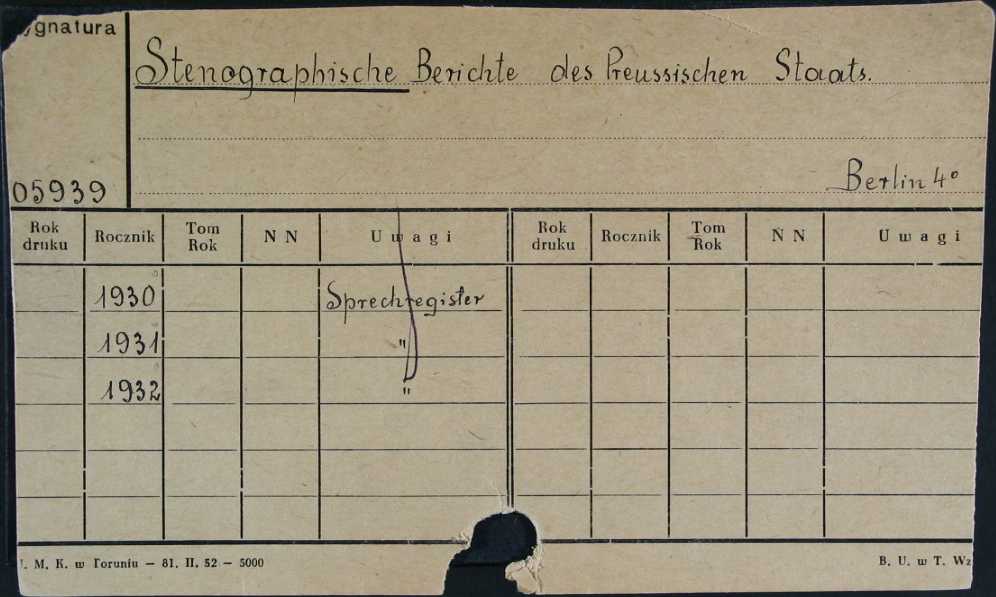 ygnatura
Stenographische Berichte des Preussischen Staats.
Berlin 4°
05939
Rok druku Rocznik Tom Rok N N Uwagi Rok druku Rocznik Tom Rok N N Uwagi
1930 Sprechregister
1931 "
1932 "
. M. K. w Toruniu — 81. II. 52 — 5000 B. U. w T. Wz